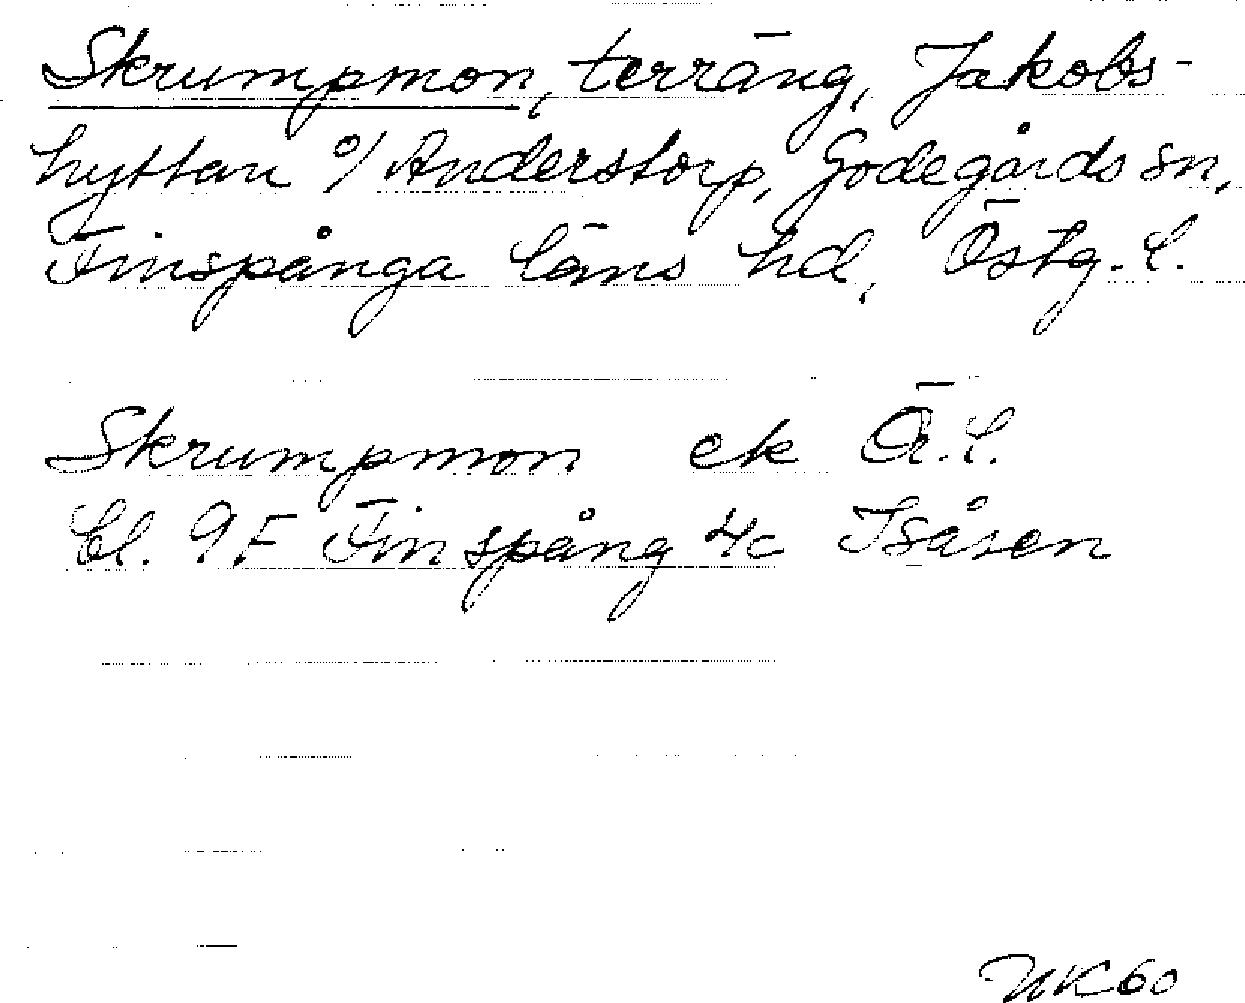 Skrumpmon, terräng, Jakobs-
hyttan o/ Anderstorp, Godegårds sn,
Finspånga läns hd, Östg. l.
Skrumpmon ek Ä. l.
bl. 9F Finspång 4c Isåsen
NK 60